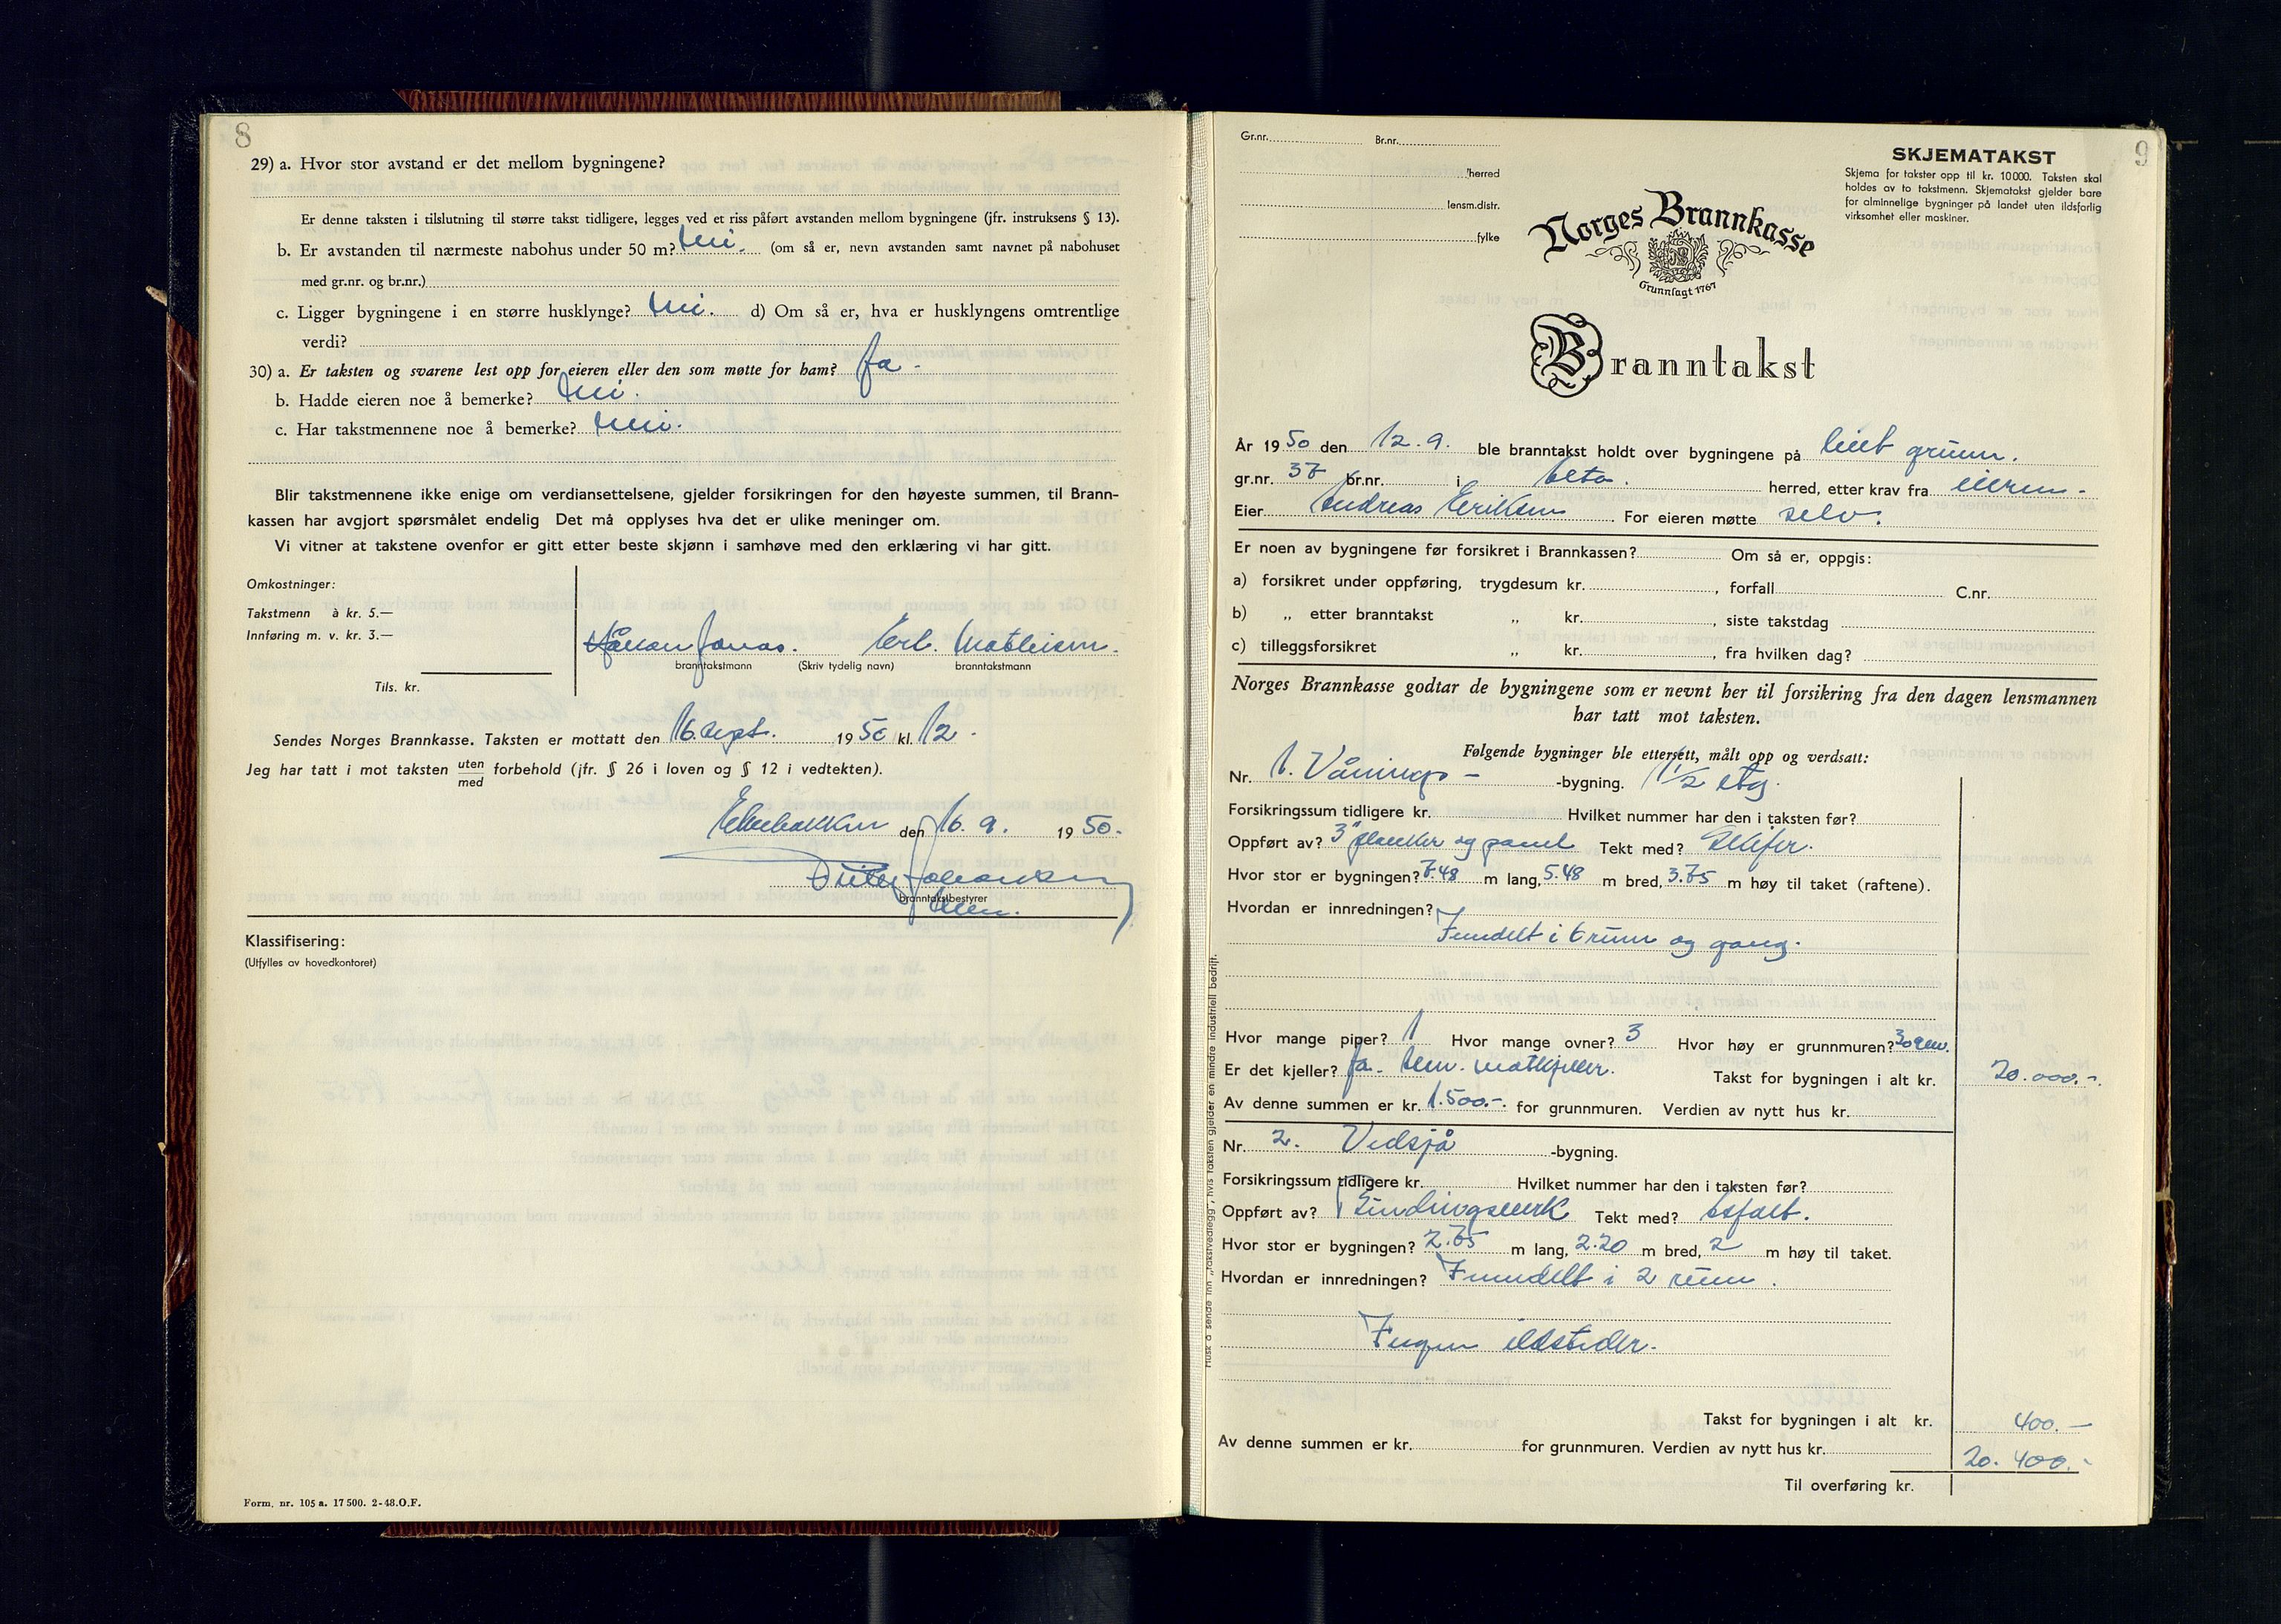 8
29) a. Hvor stor avstand er det mellom bygningene?
Er denne taksten i tilslutning til større takst tidligere, legges ved et riss påført avstanden mellom bygningene (jfr. instruksens § 13).
b. Er avstanden til nærmeste nabohus under 50 m? Nei. (om så er, nevn avstanden samt navnet på nabohuset
med gr.nr. og br.nr.)
c. Ligger bygningene i en større husklynge? Nei. d) Om så er, hva er husklyngens omtrentlige
verdi?
30) a. Er taksten og svarene lest opp for eieren eller den som møtte for ham? Ja.
b. Hadde eieren noe å bemerke? Nei.
c. Har takstmennene noe å bemerke? Nei.
Blir takstmennene ikke enige om verdiansettelsene, gjelder forsikringen for den høyeste summen, til Brann-
kassen har avgjort spørsmålet endelig Det må opplyses hva det er ulike meninger om.
Vi vitner at takstene ovenfor er gitt etter beste skjønn i samhøve med den erklæring vi har gitt.
Omkostninger:
Takstmenn à kr. 5.—
Innføring m. v. kr. 3.—
Tils. kr.
Håkon Jonas. Erl. Mathisen.
branntakstmann (Skriv tydelig navn) branntakstmann
Sendes Norges Brannkasse. Taksten er mottatt den 16. sept. 1950 kl. 12.
Jeg har tatt i mot taksten uten
med forbehold (jfr. § 26 i loven og § 12 i vedtekten).
Elvebakken den 16. 9. 1950.
Johansen
branntakstbestyrer
Klassifisering:
(Utfylles av hovedkontoret)
Form. nr. 105 a. 17 500. 2-48. O.F.
9
Gr.nr. Br.nr.
herred
lensm.distr.
fylke
SKJEMATAKST
Skjema for takster opp til kr. 10 000. Taksten skal
holdes av to takstmenn. Skjematakst gjelder bare
for alminnelige bygninger på landet uten ildsfarlig
virksomhet eller maskiner.
Norges Brannkasse
Grunnlagt 1767
Branntakst
År 1950 den 12. 9. ble branntakst holdt over bygningene på leiet grunn.
gr.nr. 37 br.nr. i Alta. herred, etter krav fra eieren.
Eier Andreas Eriksen For eieren møtte selv.
Er noen av bygningene før forsikret i Brannkassen? Om så er, oppgis:
a) forsikret under oppføring, trygdesum kr. , forfall C.nr.
b) „ etter branntakst „ kr. , siste takstdag
c) tilleggsforsikret „ kr. , fra hvilken dag?
Norges Brannkasse godtar de bygningene som er nevnt her til forsikring fra den dagen lensmannen
har tatt mot taksten.
Følgende bygninger ble ettersett, målt opp og verdsatt:
Nr. 1. Vånings- -bygning. 1 1/2 etg.
Forsikringssum tidligere kr. Hvilket nummer har den i taksten før?
Oppført av? 3" planker og panel Tekt med? Skifer.
Hvor stor er bygningen? 7.48 m lang, 5.48 m bred, 3.75 m høy til taket (raftene).
Hvordan er innredningen?
Inndelt i 6 rum og gang.
Hvor mange piper? 1 Hvor mange ovner? 3 Hvor høy er grunnmuren? 30 cm.
Er det kjeller? Ja. matkjeller. Takst for bygningen i alt kr. 20.000.-
Av denne summen er kr. 1.500.- for grunnmuren. Verdien av nytt hus kr.
Nr. 2. Vedsjå -bygning.
Forsikringssum tidligere kr. Hvilket nummer har den i taksten før?
Oppført av? Bindingsverk Tekt med? Asfalt.
Hvor stor er bygningen? 2.75 m lang, 2.20 m bred, 2 m høy til taket.
Hvordan er innredningen? Inndelt i 2 rum.
Ingen ildsteder.
Takst for bygningen i alt kr. 400.-
Av denne summen er kr. for grunnmuren. Verdien av nytt hus kr.
20.400.-
Til overføring kr.